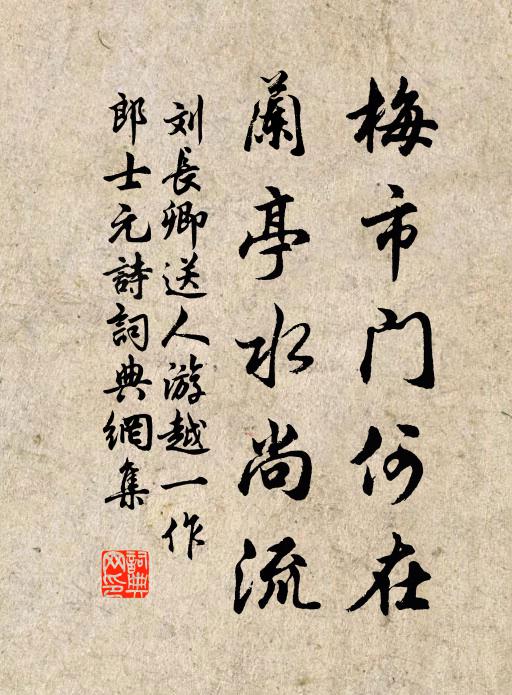 梅市門何在
蘭亭水尚流
刘長卿送人游越一作
郎士元詩詞典網集
詞典網印